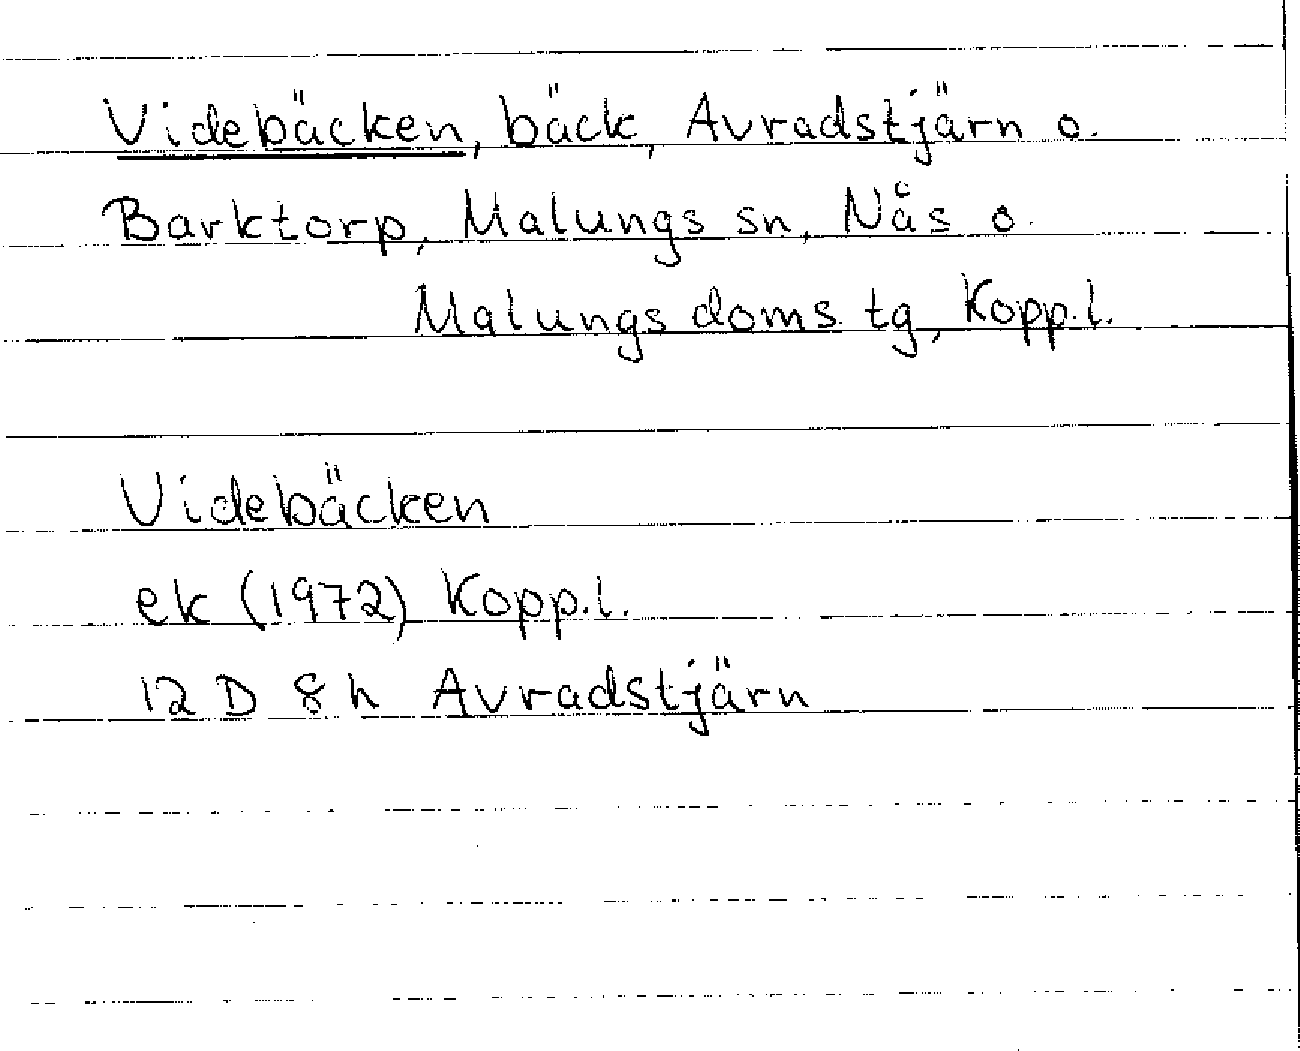 Videbäcken, bäck, Avradstjärn o.
Barktorp, Malungs sn, Nås o.
Malungs doms. tg, Kopp.l.
Videbäcken
ek (1972) Kopp.l.
12 D 8 h Avradstjärn